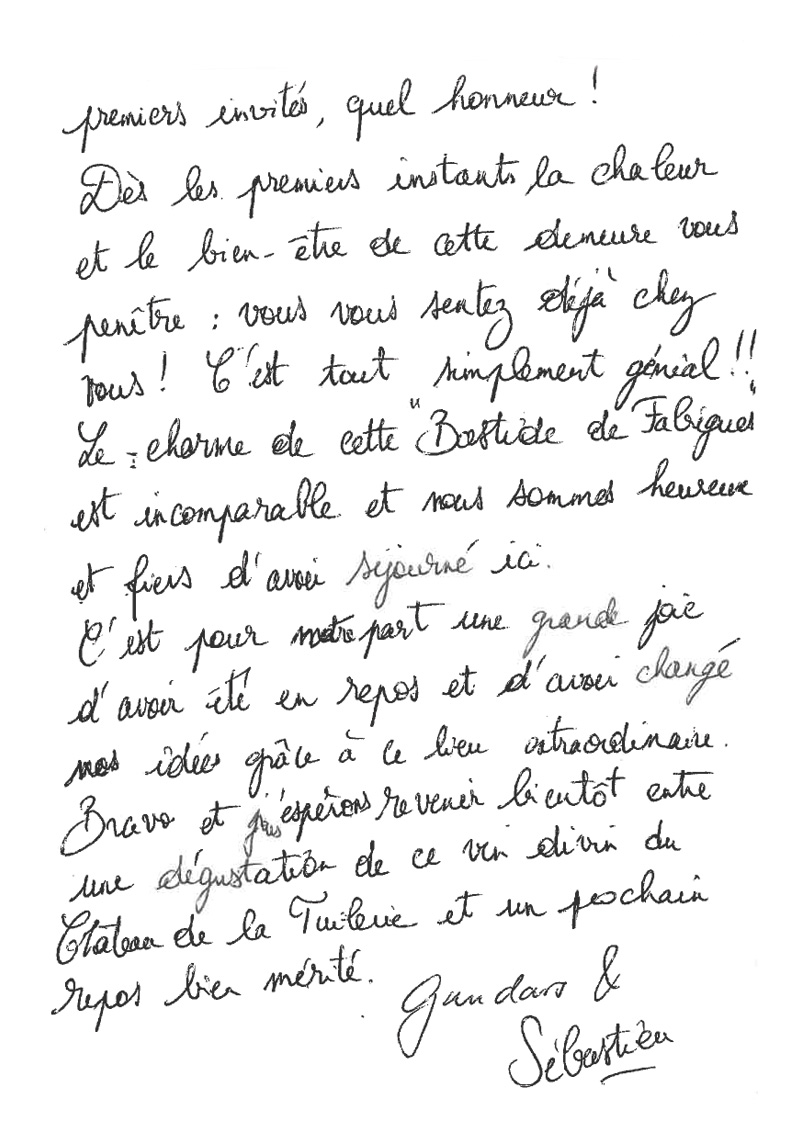 premiers invités, quel honneur !
Dès les premiers instants la chaleur
et le bien-être de cette demeure vous
penêtre : vous vous sentez déjà chez
vous ! C'est tout simplement génial !!
Le charme de cette "Bastide de Fabrigues"
est incomparable et nous sommes heureux
et fiers d'avoir séjourné ici.
C'est pour notre part une grande joie
d'avoir été en repos et d'avoir changé
nos idées grâce à ce lieu extraordinaire.
Bravo et espérons revenir bientôt entre
une dégustation de ce vin divin du
Château de la Tuilerie et un prochain
repos bien mérité.
Gundars &
Sébastien